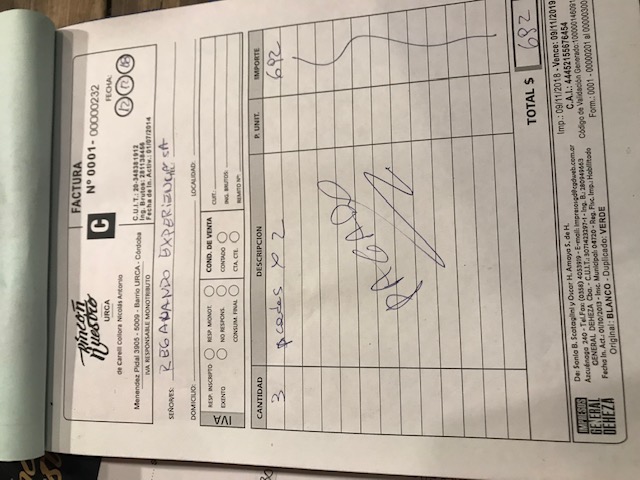 Rincón
Nuestro
URCA
de Carelli Collora Nicolás Antonio
Menendez Pidal 3905 - 5009 - Barrio URCA - Córdoba
IVA RESPONSABLE MONOTRIBUTO
C
FACTURA
Nº 0001- 00000232
FECHA:
12 12 18
C.U.I.T.: 20-348381912
Ing. Brutos: 281138456
Fecha de In. Activ.: 01/07/2014
SEÑORES: REGALANDO EXPERIENCIAS SA
DOMICILIO: LOCALIDAD:
IVA
RESP. INSCRIPTO RESP. MONOT.
EXENTO NO RESPONS.
CONSUM. FINAL
COND. DE VENTA
CONTADO
CTA. CTE.
CUIT:
ING. BRUTOS:
REMITO Nº:
CANTIDAD DESCRIPCION P. UNIT. IMPORTE
3 x 2 692
PAGADO
TOTAL $ 692
IMPRESOS
GENERAL
DEHEZA
De: Sonia B. Scotaglini y Oscar H. Amaya S. de H.
Azcuénaga 240 - Tel.Fax: (0358) 4053919 - E-mail: impresosgd@cgdweb.com.ar
GENERAL DEHEZA Cba. - C.U.I.T.: 30714233297-1 - Ing. B.: 280949663
Fecha In. Act.: 01/10/2013 - Insc. Municipal: 04720 - Reg. Fisc. Imp.: Habilitado
Original: BLANCO - Duplicado: VERDE
Imp.: 09/11/2018 - Vence: 09/11/2019
C.A.I.: 44452155676454
Código de Validación Generado:
Form.: 0001 - 00000201 al